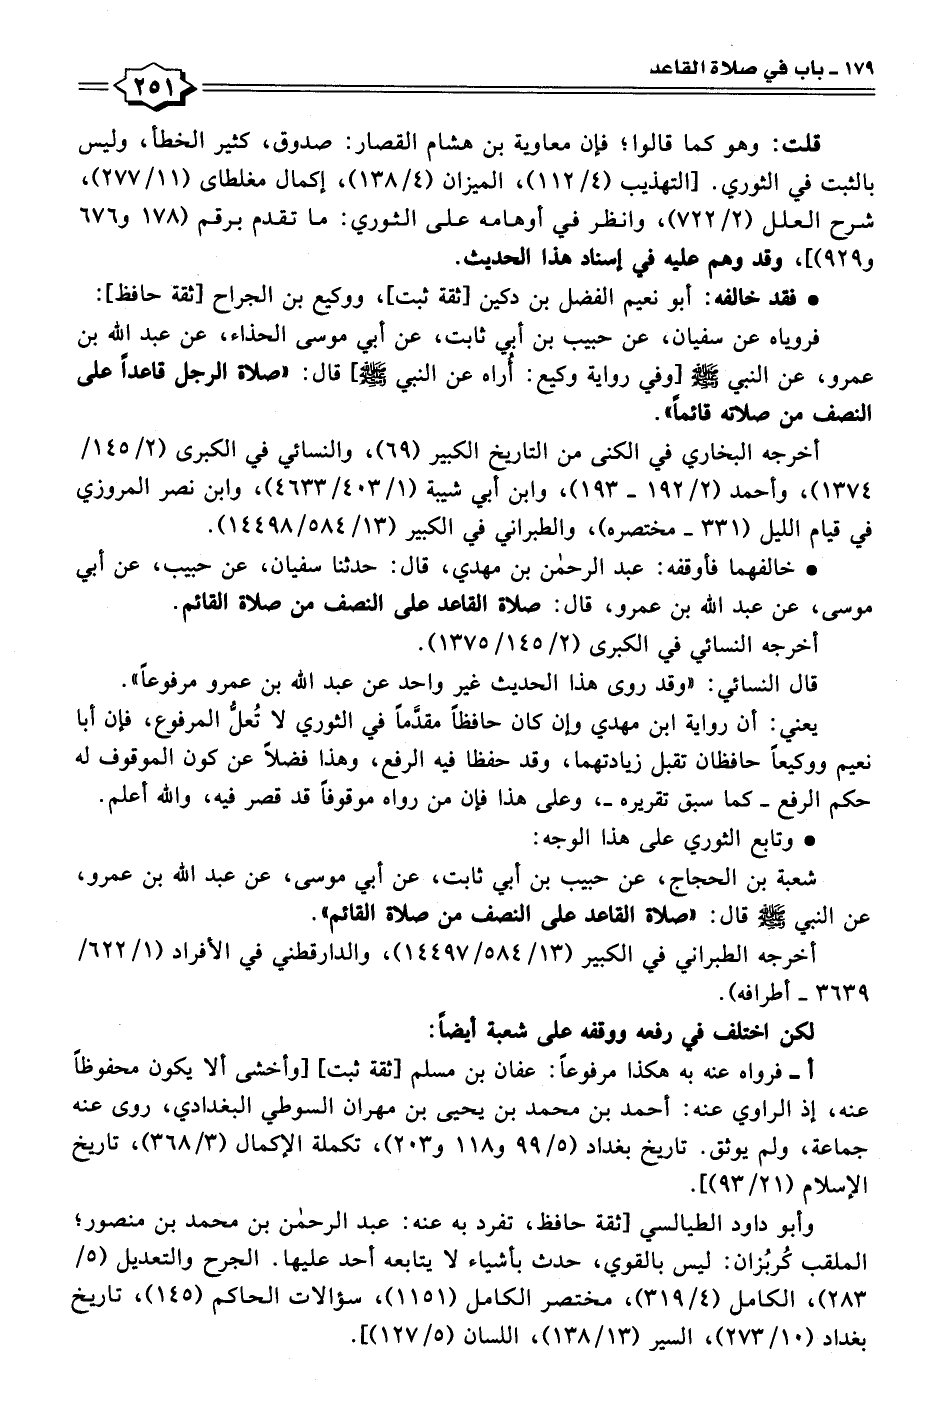 ١٧٩ - باب في صلاة القاعد
٢٥١
قلت: وهو كما قالوا؛ فإن معاوية بن هشام القصار: صدوق، كثير الخطأ، وليس
بالثبت في الثوري. [التهذيب (١١٢/٤)، الميزان (١٣٨/٤)، إكمال مغلطاي (٢٧٧/١١)،
شرح العلل (٧٢٢/٢)، وانظر في أوهامه على الثوري: ما تقدم برقم (١٧٨ و٦٧٦
و٩٢٩)]، وقد وهم عليه في إسناد هذا الحديث.
• فقد خالفه: أبو نعيم الفضل بن دكين [ثقة ثبت]، ووكيع بن الجراح [ثقة حافظ]:
فروياه عن سفيان، عن حبيب بن أبي ثابت، عن أبي موسى الحذاء، عن عبد الله بن
عمرو، عن النبي ﷺ [وفي رواية وكيع: أُراه عن النبي ﷺ] قال: «صلاة الرجل قاعداً على
النصف من صلاته قائماً».
أخرجه البخاري في الكنى من التاريخ الكبير (٦٩)، والنسائي في الكبرى (٢/ ١٤٥/
١٣٧٤)، وأحمد (١٩٢/٢ - ١٩٣)، وابن أبي شيبة (٤٦٣٣/٤٠٣/١)، وابن نصر المروزي
في قيام الليل (٣٣١ - مختصره)، والطبراني في الكبير (١٤٤٩٨/٥٨٤/١٣).
• خالفهما فأوقفه: عبد الرحمٰن بن مهدي، قال: حدثنا سفيان، عن حبيب، عن أبي
موسى، عن عبد الله بن عمرو، قال: صلاة القاعد على النصف من صلاة القائم.
أخرجه النسائي في الكبرى (١٣٧٥/١٤٥/٢).
قال النسائي: «وقد روى هذا الحديث غير واحد عن عبد الله بن عمرو مرفوعاً».
يعني: أن رواية ابن مهدي وإن كان حافظاً مقدَّماً في الثوري لا تُعلُّ المرفوع، فإن أبا
نعيم ووكيعاً حافظان تقبل زيادتهما، وقد حفظا فيه الرفع، وهذا فضلاً عن كون الموقوف له
حكم الرفع - كما سبق تقريره -، وعلى هذا فإن من رواه موقوفاً قد قصر فيه، والله أعلم.
• وتابع الثوري على هذا الوجه:
شعبة بن الحجاج، عن حبيب بن أبي ثابت، عن أبي موسى، عن عبد الله بن عمرو،
عن النبي ﷺ قال: «صلاة القاعد على النصف من صلاة القائم».
أخرجه الطبراني في الكبير (١٤٤٩٧/٥٨٤/١٣)، والدارقطني في الأفراد (١/ ٦٢٢/
٣٦٣٩ - أطرافه).
لكن اختلف في رفعه ووقفه على شعبة أيضاً:
أ - فرواه عنه به هكذا مرفوعاً: عفان بن مسلم [ثقة ثبت] [وأخشى ألا يكون محفوظاً
عنه، إذ الراوي عنه: أحمد بن محمد بن يحيى بن مهران السوطي البغدادي، روى عنه
جماعة، ولم يوثق. تاريخ بغداد (٩٩/٥ و١١٨ و٢٠٣)، تكملة الإكمال (٣٦٨/٣)، تاريخ
الإسلام (٩٣/٢١)].
وأبو داود الطيالسي [ثقة حافظ، تفرد به عنه: عبد الرحمٰن بن محمد بن منصور؛
الملقب كُربُزان: ليس بالقوي، حدث بأشياء لا يتابعه أحد عليها. الجرح والتعديل (٥/
٢٨٣)، الكامل (٣١٩/٤)، مختصر الكامل (١١٥١)، سؤالات الحاكم (١٤٥)، تاريخ
بغداد (٢٧٣/١٠)، السير (١٣٨/١٣)، اللسان (١٢٧/٥)].